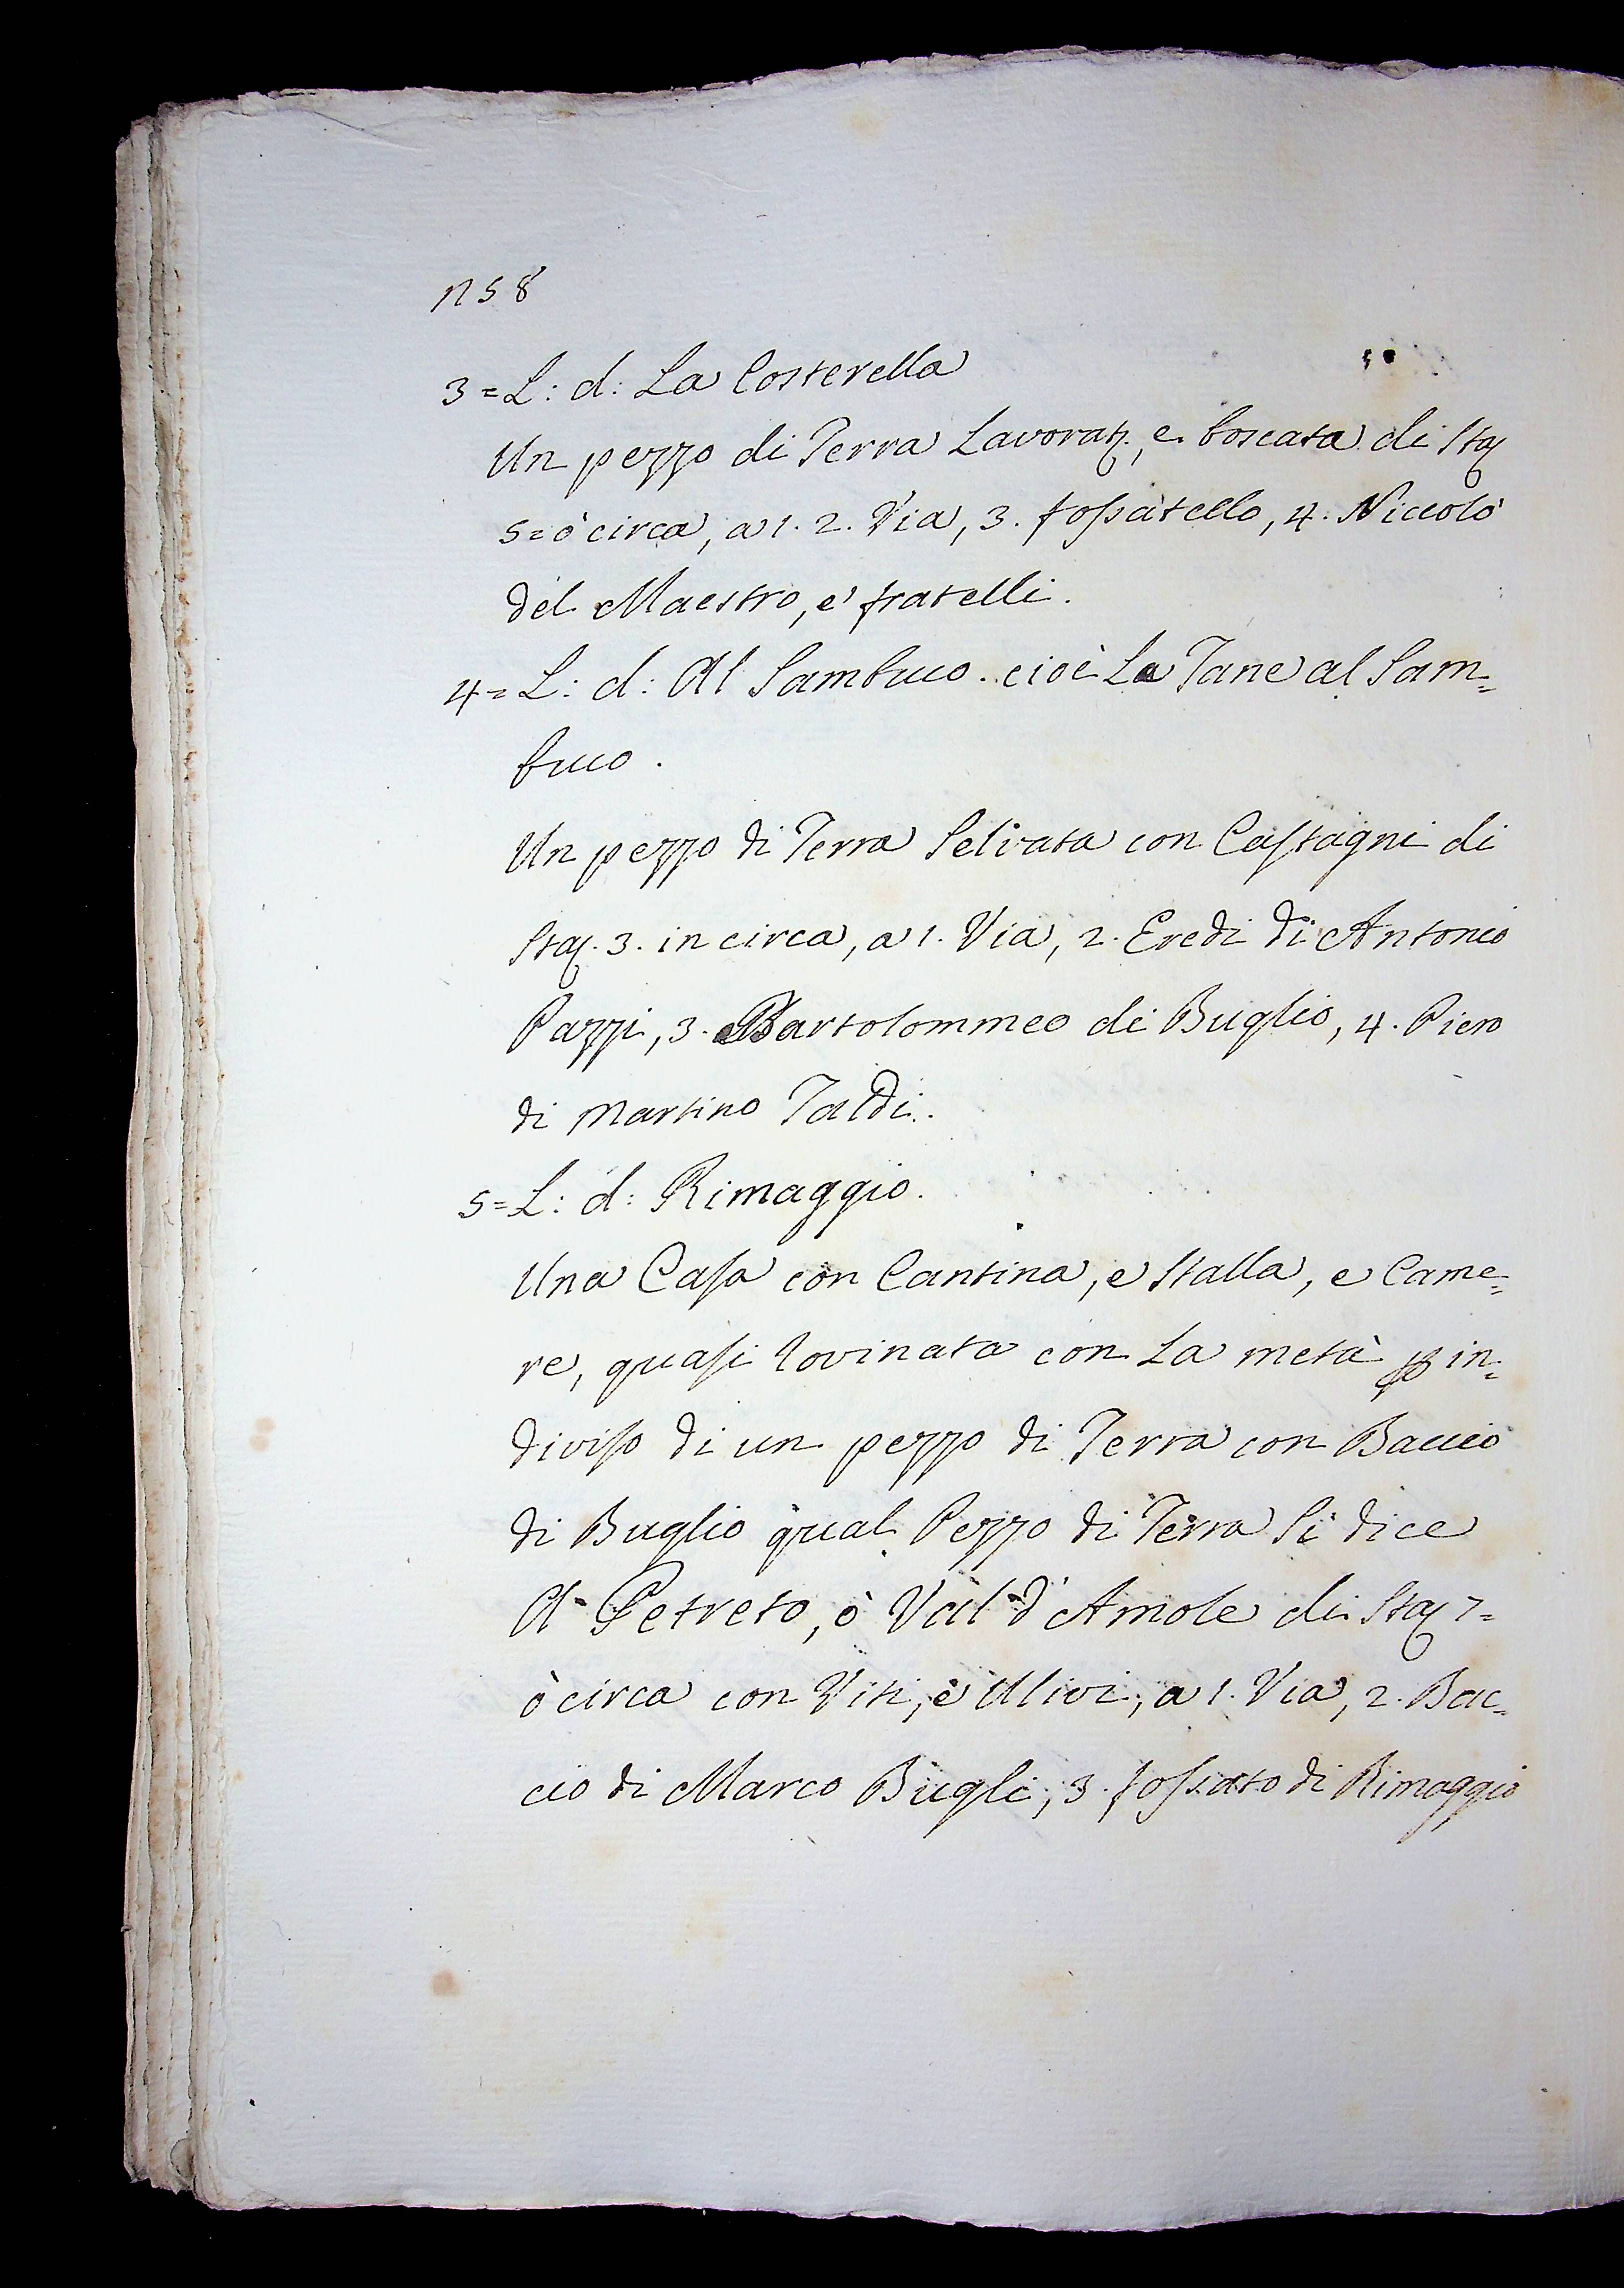 1758
3 = L: d: La Costerella
Un pezzo di Terra Lavorat., e boscata di Sta
5 = ò circa, a 1. 2. Via, 3. fossatello, 4. Niccolò
del Maestro, e fratelli.
4 = L: d: Al Sambuco. cioè La Tane al Sam=
buco.
Un pezzo di Terra Selvata con Castagni di
Sta. 3. in circa, a 1. Via, 2. Eredi di Antonio
Pazzi, 3. Bartolommeo di Buglio, 4. Piero
di Martino Taldi.
5 = L: d: Rimaggio.
Una Casa con Cantina, e Stalla, e Came=
re, quasi rovinata con La metà p in=
diviso di un pezzo di Terra con Baccio
di Buglio qual Pezzo di Terra Si dice
A Petreto, ò Val d'Amole di Sta 7 =
ò circa con Viti, e Ulivi, a 1. Via, 2. Bac=
cio di Marco Bugli, 3. fossato di Rimaggio